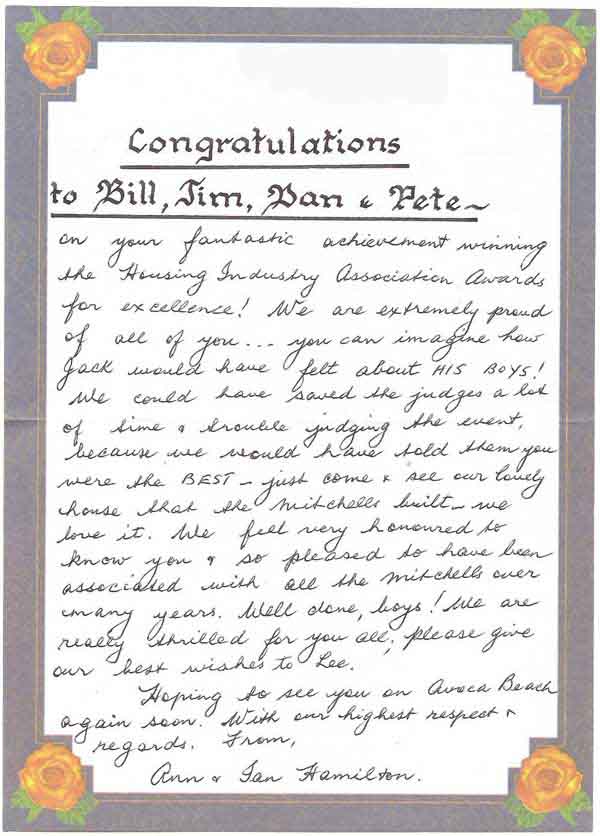 Congratulations
to Bill, Jim, Dan & Pete ~
on your fantastic achievement winning
the Housing Industry Association Awards
for excellence! We are extremely proud
of all of you... you can imagine how
Jack would have felt about HIS BOYS!
We could have saved the judges a lot
of time & trouble judging the event,
because we would have told them you
were the BEST – just come & see our lovely
house that the Mitchells built – we
love it. We feel very honoured to
know you & so pleased to have been
associated with all the Mitchells over
many years. Well done, boys! We are
really thrilled for you all; please give
our best wishes to Lee.
Hoping to see you on Avoca Beach
again soon. With our highest respect &
regards. From,
Ann & Ian Hamilton.